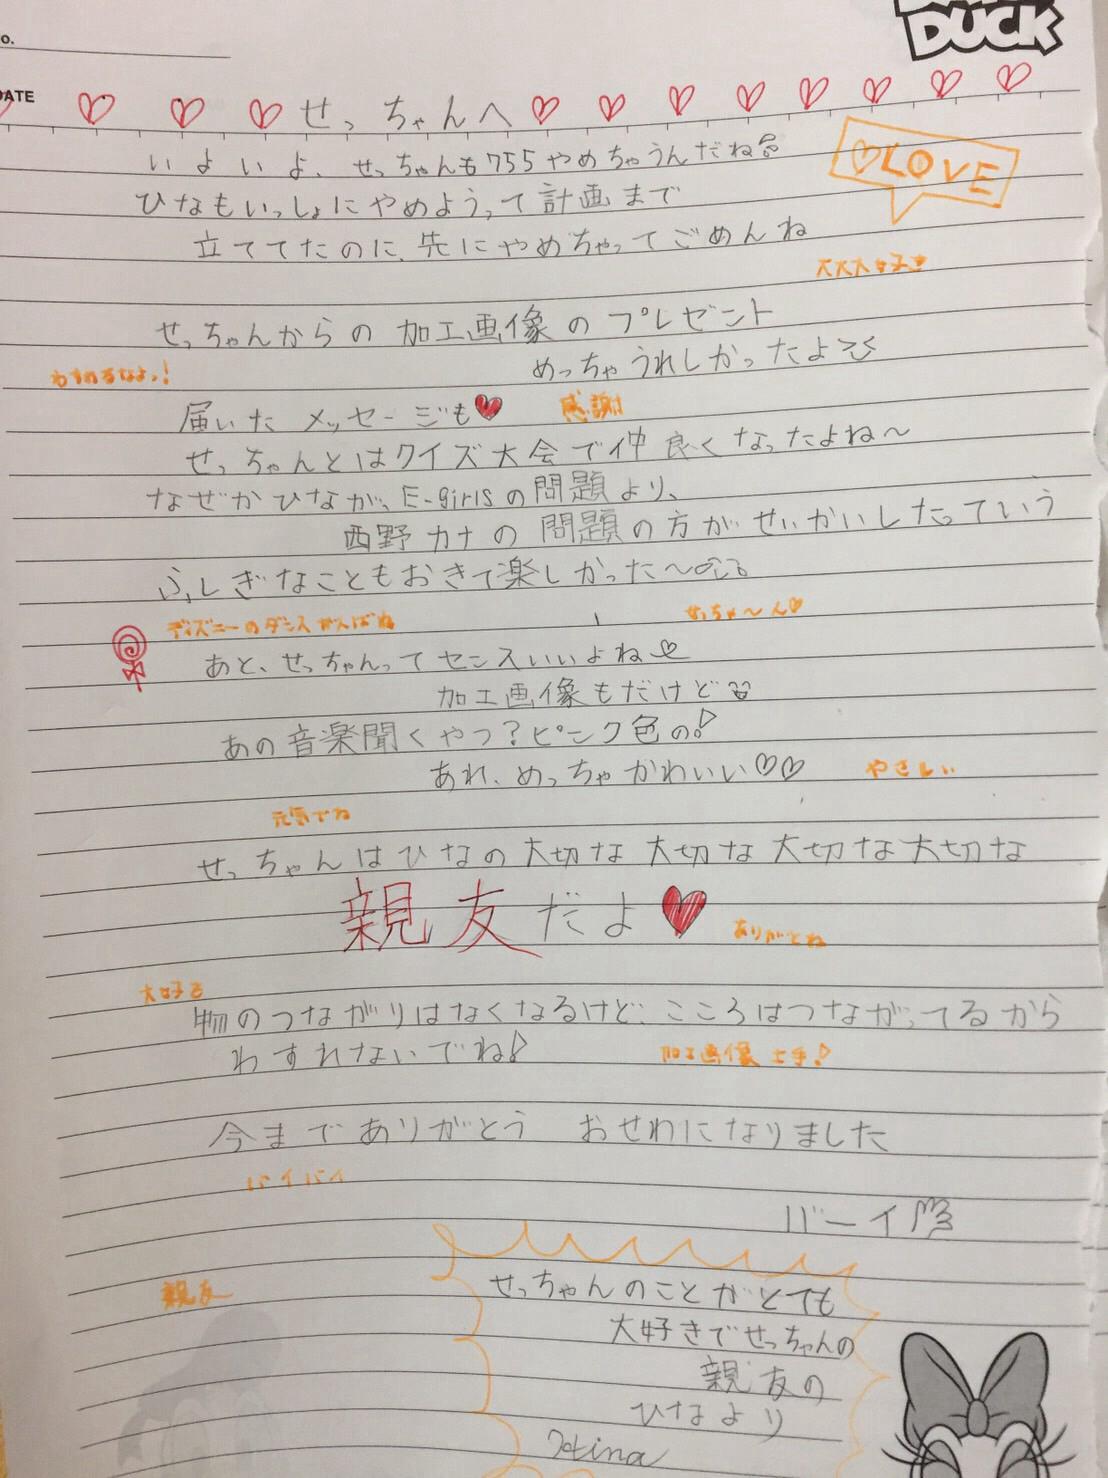 DUCK
o.
DATE
せっちゃんへ
いよいよ、せっちゃんも755やめちゃうんだね
♡LOVE
ひなもいっしょにやめようって計画まで
立ててたのに、先にやめちゃってごめんね
大大大好き
せっちゃんからの加工画像のプレゼント
めっちゃうれしかったよ
わすれるなよっ!
届いたメッセージも♥
感謝
せっちゃんとはクイズ大会で仲良くなったよね〜
なぜかひなが、E-girlsの問題より、
西野カナの問題の方がせいかいしたっていう
ふしぎなこともおきて楽しかった〜
ディズニーのダンスがんばね
せっちゃ〜ん♡
あと、せっちゃんってセンスいいよね
加工画像もだけど
あの音楽聞くやつ?ピンク色の♪
あれ、めっちゃかわいい♡♡
やさしい
元気でね
せっちゃんはひなの大切な大切な大切な大切な
親友だよ♥
ありがとね
大好き
物のつながりはなくなるけど、こころはつながってるから
わすれないでね♪
加工画像上手♪
今までありがとう おせわになりました
バイバイ
バーイ
親友
せっちゃんのことがとても
大好きでせっちゃんの
親友の
ひなより
Hina